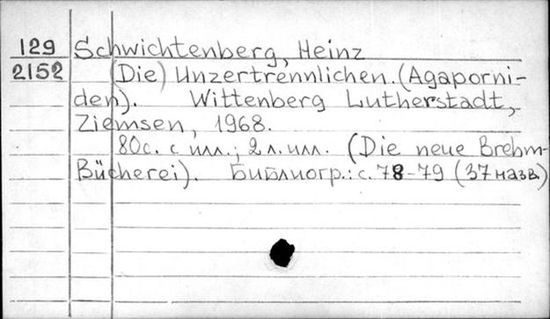 129 Schwichtenberg, Heinz
2152 (Die) Unzertrennlichen. (Agaporni-
den). Wittenberg Lutherstadt,
Ziemsen, 1968.
80с. с илл.; 2 л. илл. (Die neue Brehm-
Bücherei). Библиогр.: с. 78-79 (37 назв.)